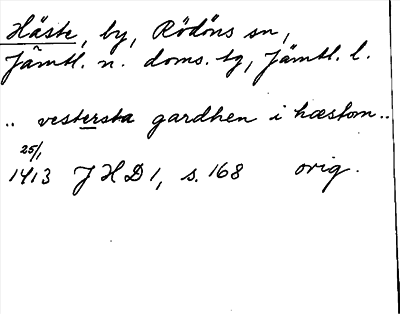 Häste, by, Rödöns sn,
Jämtl. n. doms. tg, Jämtl. l.
.. vestersta gardhen i hæstom ..
25/1
1413 JHD 1, s. 168 orig.